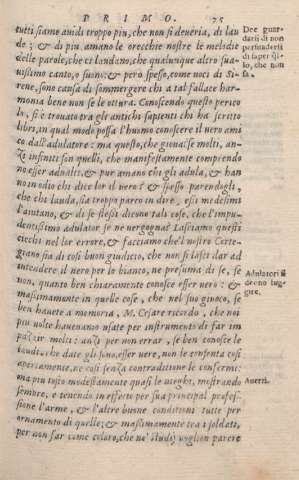 PRIMO. 75
tutti siamo auidi troppo piu, che non si deueria, di lau
de; & di piu, amano le orecchie nostre le melodie
delle parole, che ci laudano, che qualunque altro sua-
uissimo canto, o suono: & però spesso, come uoci di Si-
rene, sono causa di sommergere chi a tal fallace har-
monia bene non se le ottura. Conoscendo questo perico
lo, si è trouato tra gli antichi sapienti chi ha scritto
libri, in qual modo possa l'huomo conoscere il uero ami
co dall'adulatore: ma questo, che gioua? se molti, an-
zi infiniti son quelli, che manifestamente comprendo
no esser adulati, & pur amano chi gli adula, & han
no in odio chi dice lor il uero? & spesso parendogli,
che chi lauda, sia troppo parco in dire, essi medesimi
l'aiutano, & di se stessi dicono tali cose, che l'impu-
dentissimo adulator se ne uergogna? Lasciamo questi
ciechi nel lor errore, & facciamo che'l nostro Corte-
giano sia di cosi buon giudicio, che non si lasci dar ad
intendere il nero per lo bianco, ne presuma di se, se
non, quanto ben chiaramente conosce esser uero: &
massimamente in quelle cose, che nel suo giuoco, se
ben hauete a memoria, M. Cesare ricordò, che noi
piu uolte haueuamo usate per instrumento di far im
pazzir molti: anzi per non errar, se ben conosce le
laudi, che date gli sono, esser uere, non le consenta cosi
apertamente, ne cosi senza contradittione le confermi:
ma piu tosto modestamente quasi le nieghi, mostrando
sempre, e tenendo in effetto per sua principal profes-
sione l'arme, & l'altre buone conditioni tutte per
ornamento di quelle; & massimamente tra i soldati,
per non far come coloro, che ne' studij uoglion parere
Dee guar-
darsi di non
persuadersi
di saper
lo, che non
sa.
Adulatori si
deono fug-
gire.
Auerti.